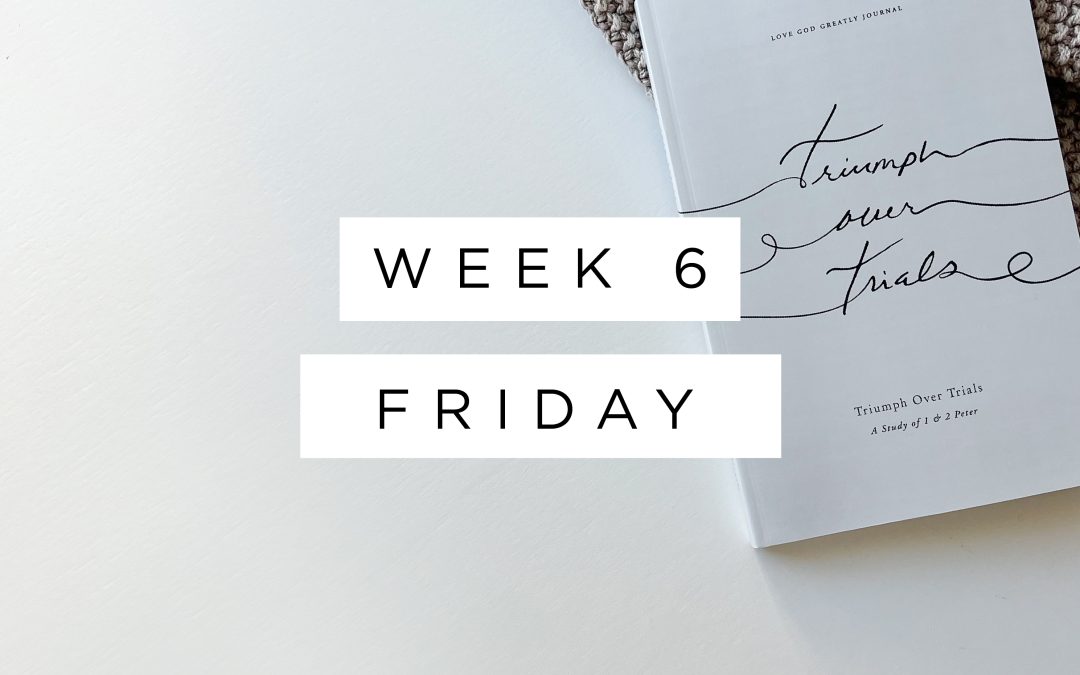 LOVE GOD GREATLY JOURNAL
Triumph
over
Trials
WEEK 6
FRIDAY
Triumph Over Trials
A Study of 1 & 2 Peter